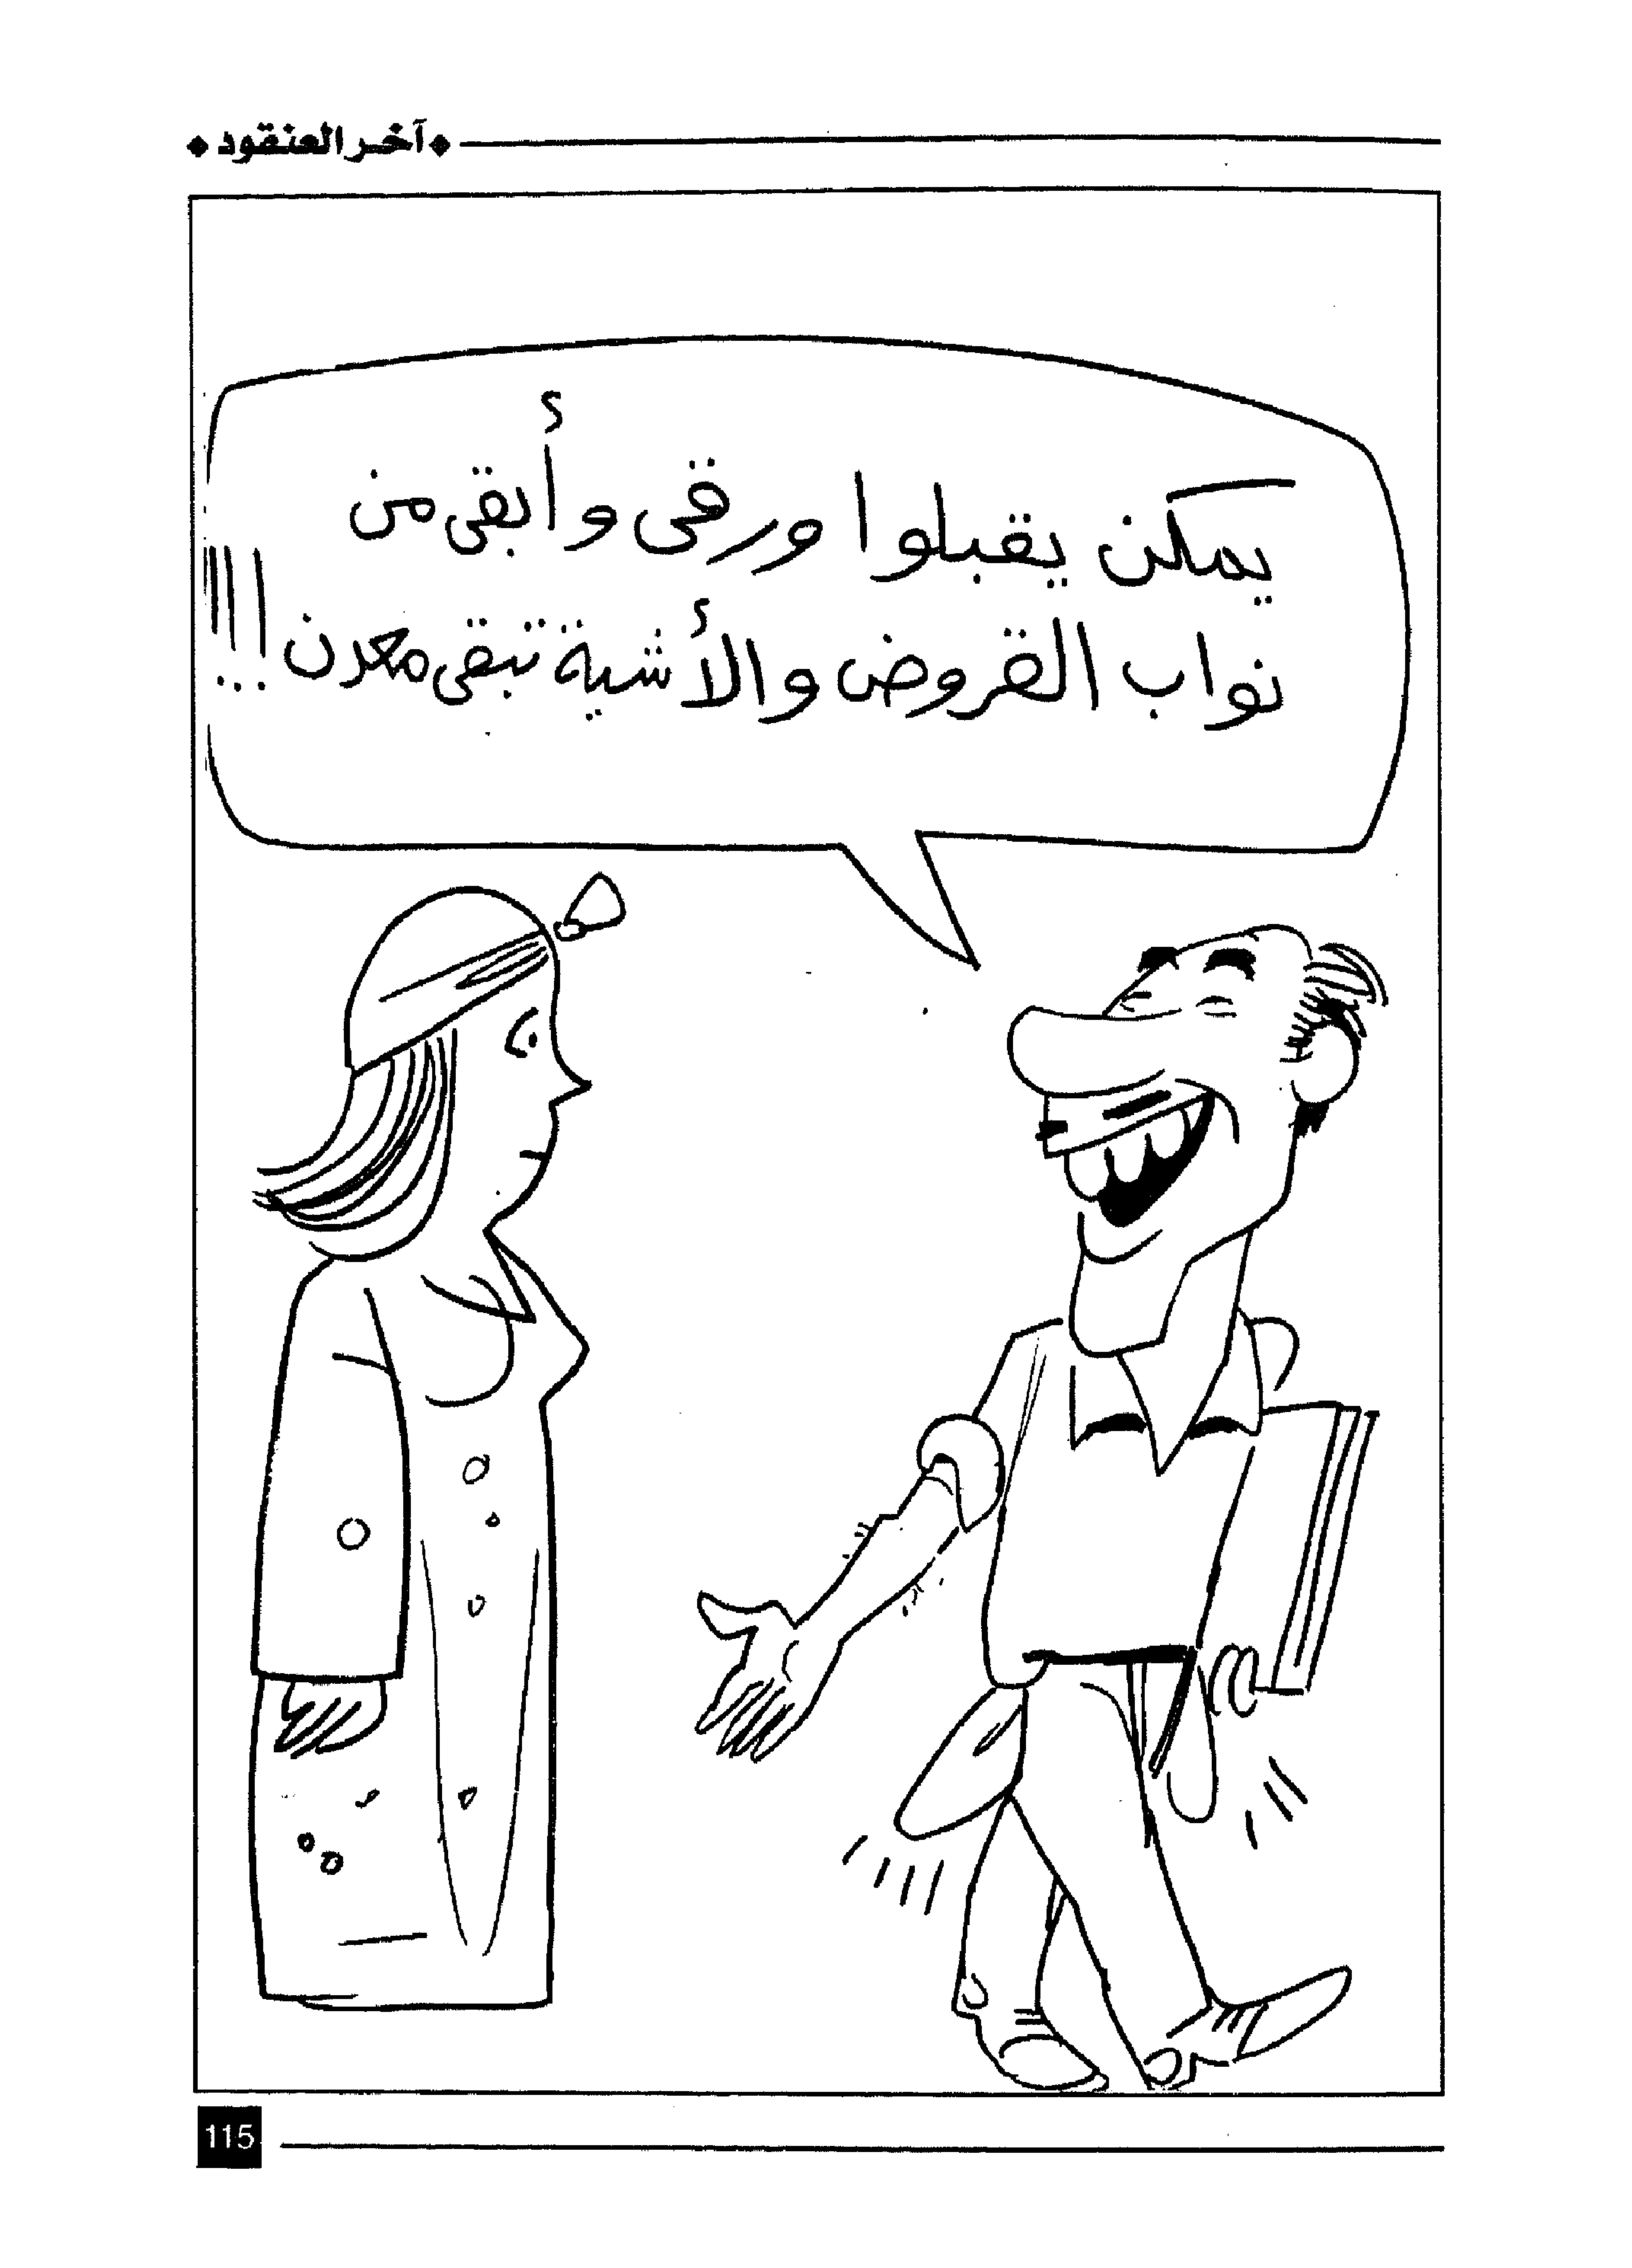 آخر العنقود
يمكن يقبلوا ورقى وأبقى من
نواب القروض والأشية تبقى معدن !!!
115